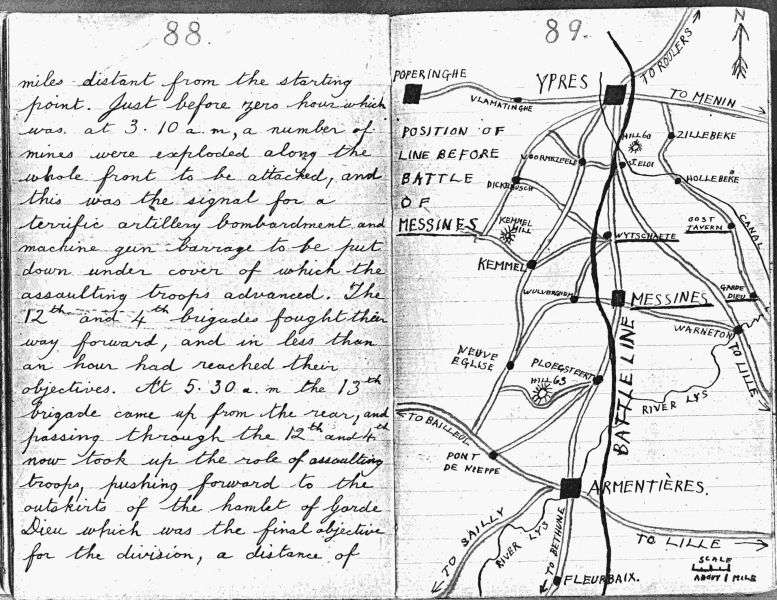 88.
miles distant from the starting
point. Just before zero hour which
was at 3.10 a.m, a number of
mines were exploded along the
whole front to be attacked, and
this was the signal for a
terrific artillery bombardment and
machine gun barrage to be put
down under cover of which the
assaulting troops advanced. The
12th and 4th brigades fought their
way forward, and in less than
an hour had reached their
objectives. At 5.30 a.m the 13th
brigade came up from the rear, and
passing through the 12th and 4th
now took up the role of assaulting
troops, pushing forward to the
outskirts of the hamlet of Garde
Dieu which was the final objective
for the division, a distance of
89.
N
TO ROULERS
POPERINGHE
YPRES
VLAMATINGHE
TO MENIN
POSITION OF
LINE BEFORE
BATTLE
OF
MESSINES
HILL 60
ZILLEBEKE
VOORMEZEELE
ST. ELOI
DICKEBUSCH
HOLLEBEKE
KEMMEL
HILL
OOST
TAVERN
CANAL
WYTSCHAETE
KEMMEL
WULVERGHEM
MESSINES
GARDE
DIEU
WARNETON
NEUVE
EGLISE
PLOEGSTEERT
HILL 63
BATTLE LINE
TO LILLE
RIVER LYS
TO BAILLEUL
PONT
DE NIEPPE
ARMENTIÈRES.
TO SAILLY
RIVER LYS
TO BETHUNE
TO LILLE
SCALE
ABOUT 1 MILE
FLEURBAIX.